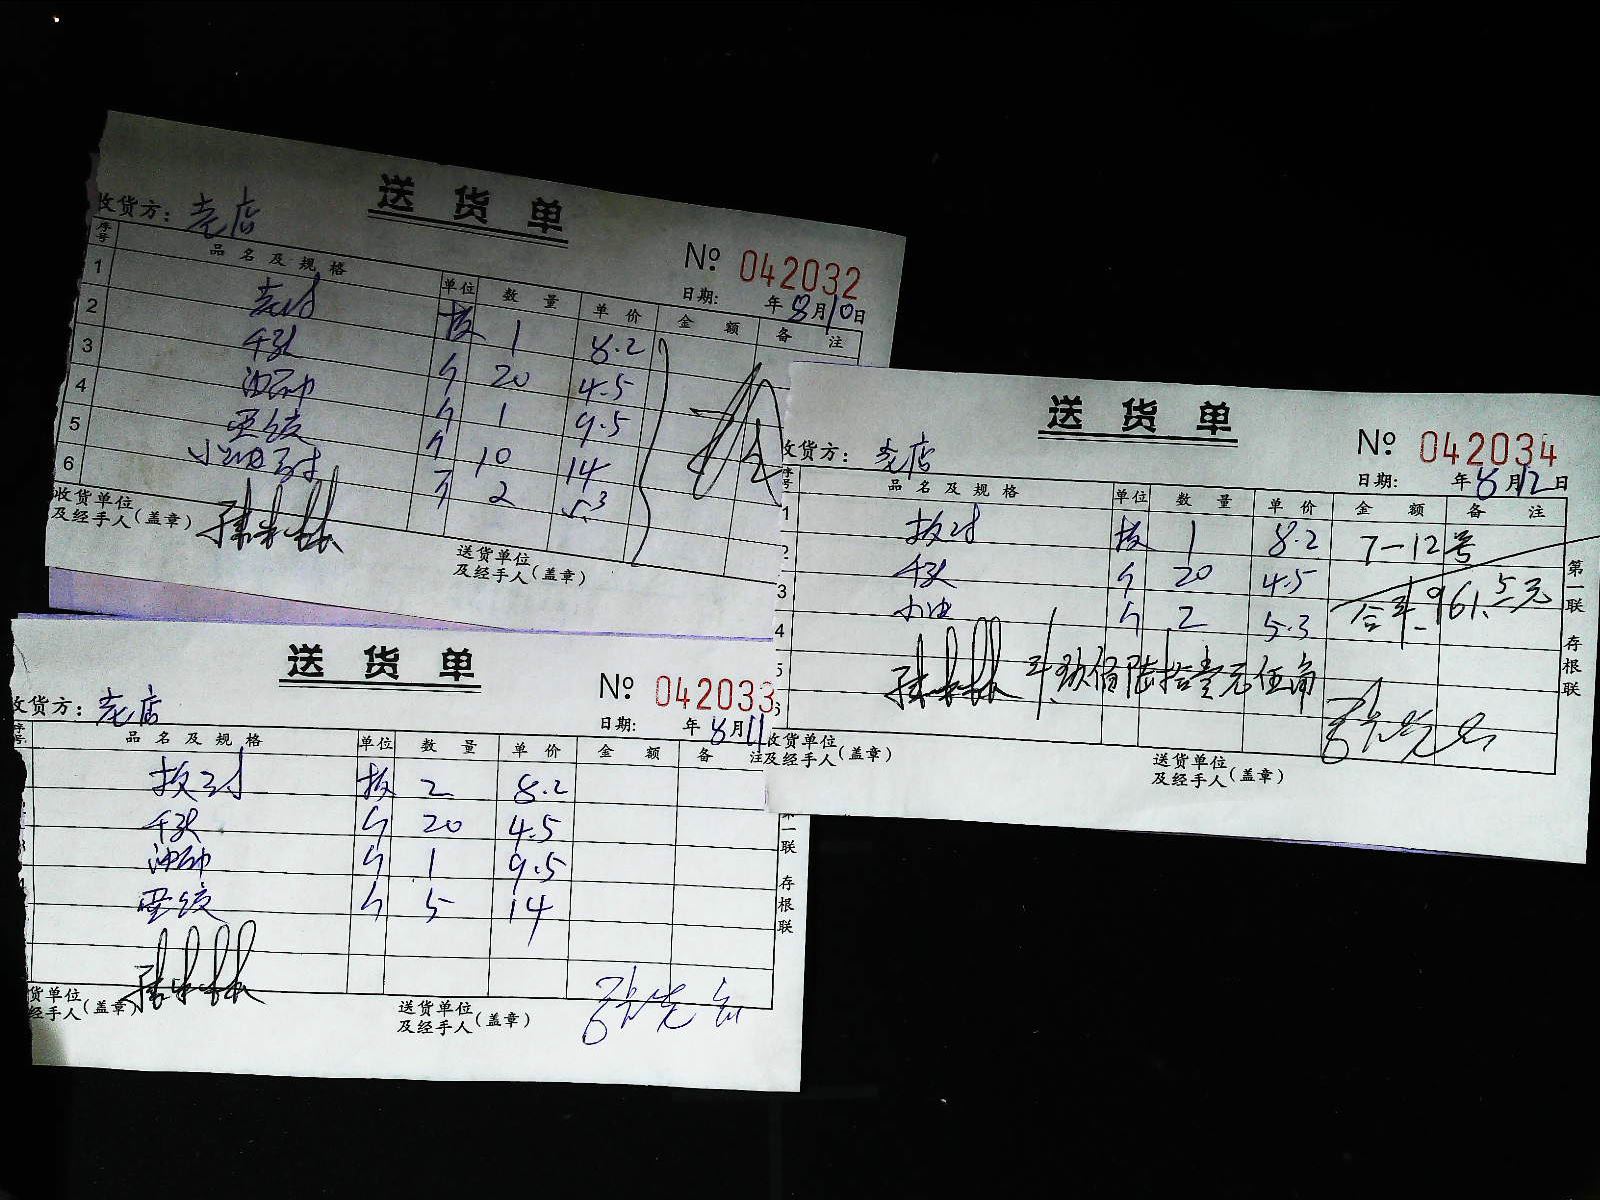 送货单
收货方: 老店
No 042032
日期: 年8月10日
序号 品名及规格 单位 数量 单价 金额 备注
1 板 1 8.2
2 千张 斤 20 4.5
3 斤 1 9.5
4 斤 10 14
5 斤 2 5.3
6
收货单位及经手人(盖章)
送货单位及经手人(盖章)
送货单
收货方: 老店
No 042033
日期: 年8月11
序号 品名及规格 单位 数量 单价 金额 备注
板 2 8.2
千张 斤 20 4.5
斤 1 9.5
斤 5 14
货单位
经手人(盖章)
送货单位及经手人(盖章)
第一联 存根联
送货单
收货方: 老店
No 042034
日期: 年8月12日
序号 品名及规格 单位 数量 单价 金额 备注
1 板 1 8.2 7-12号
2 千张 斤 20 4.5
3 斤 2 5.3 合计 961.5元
4
5 玖佰陆拾壹元伍角
收货单位及经手人(盖章)
送货单位及经手人(盖章)
第一联 存根联